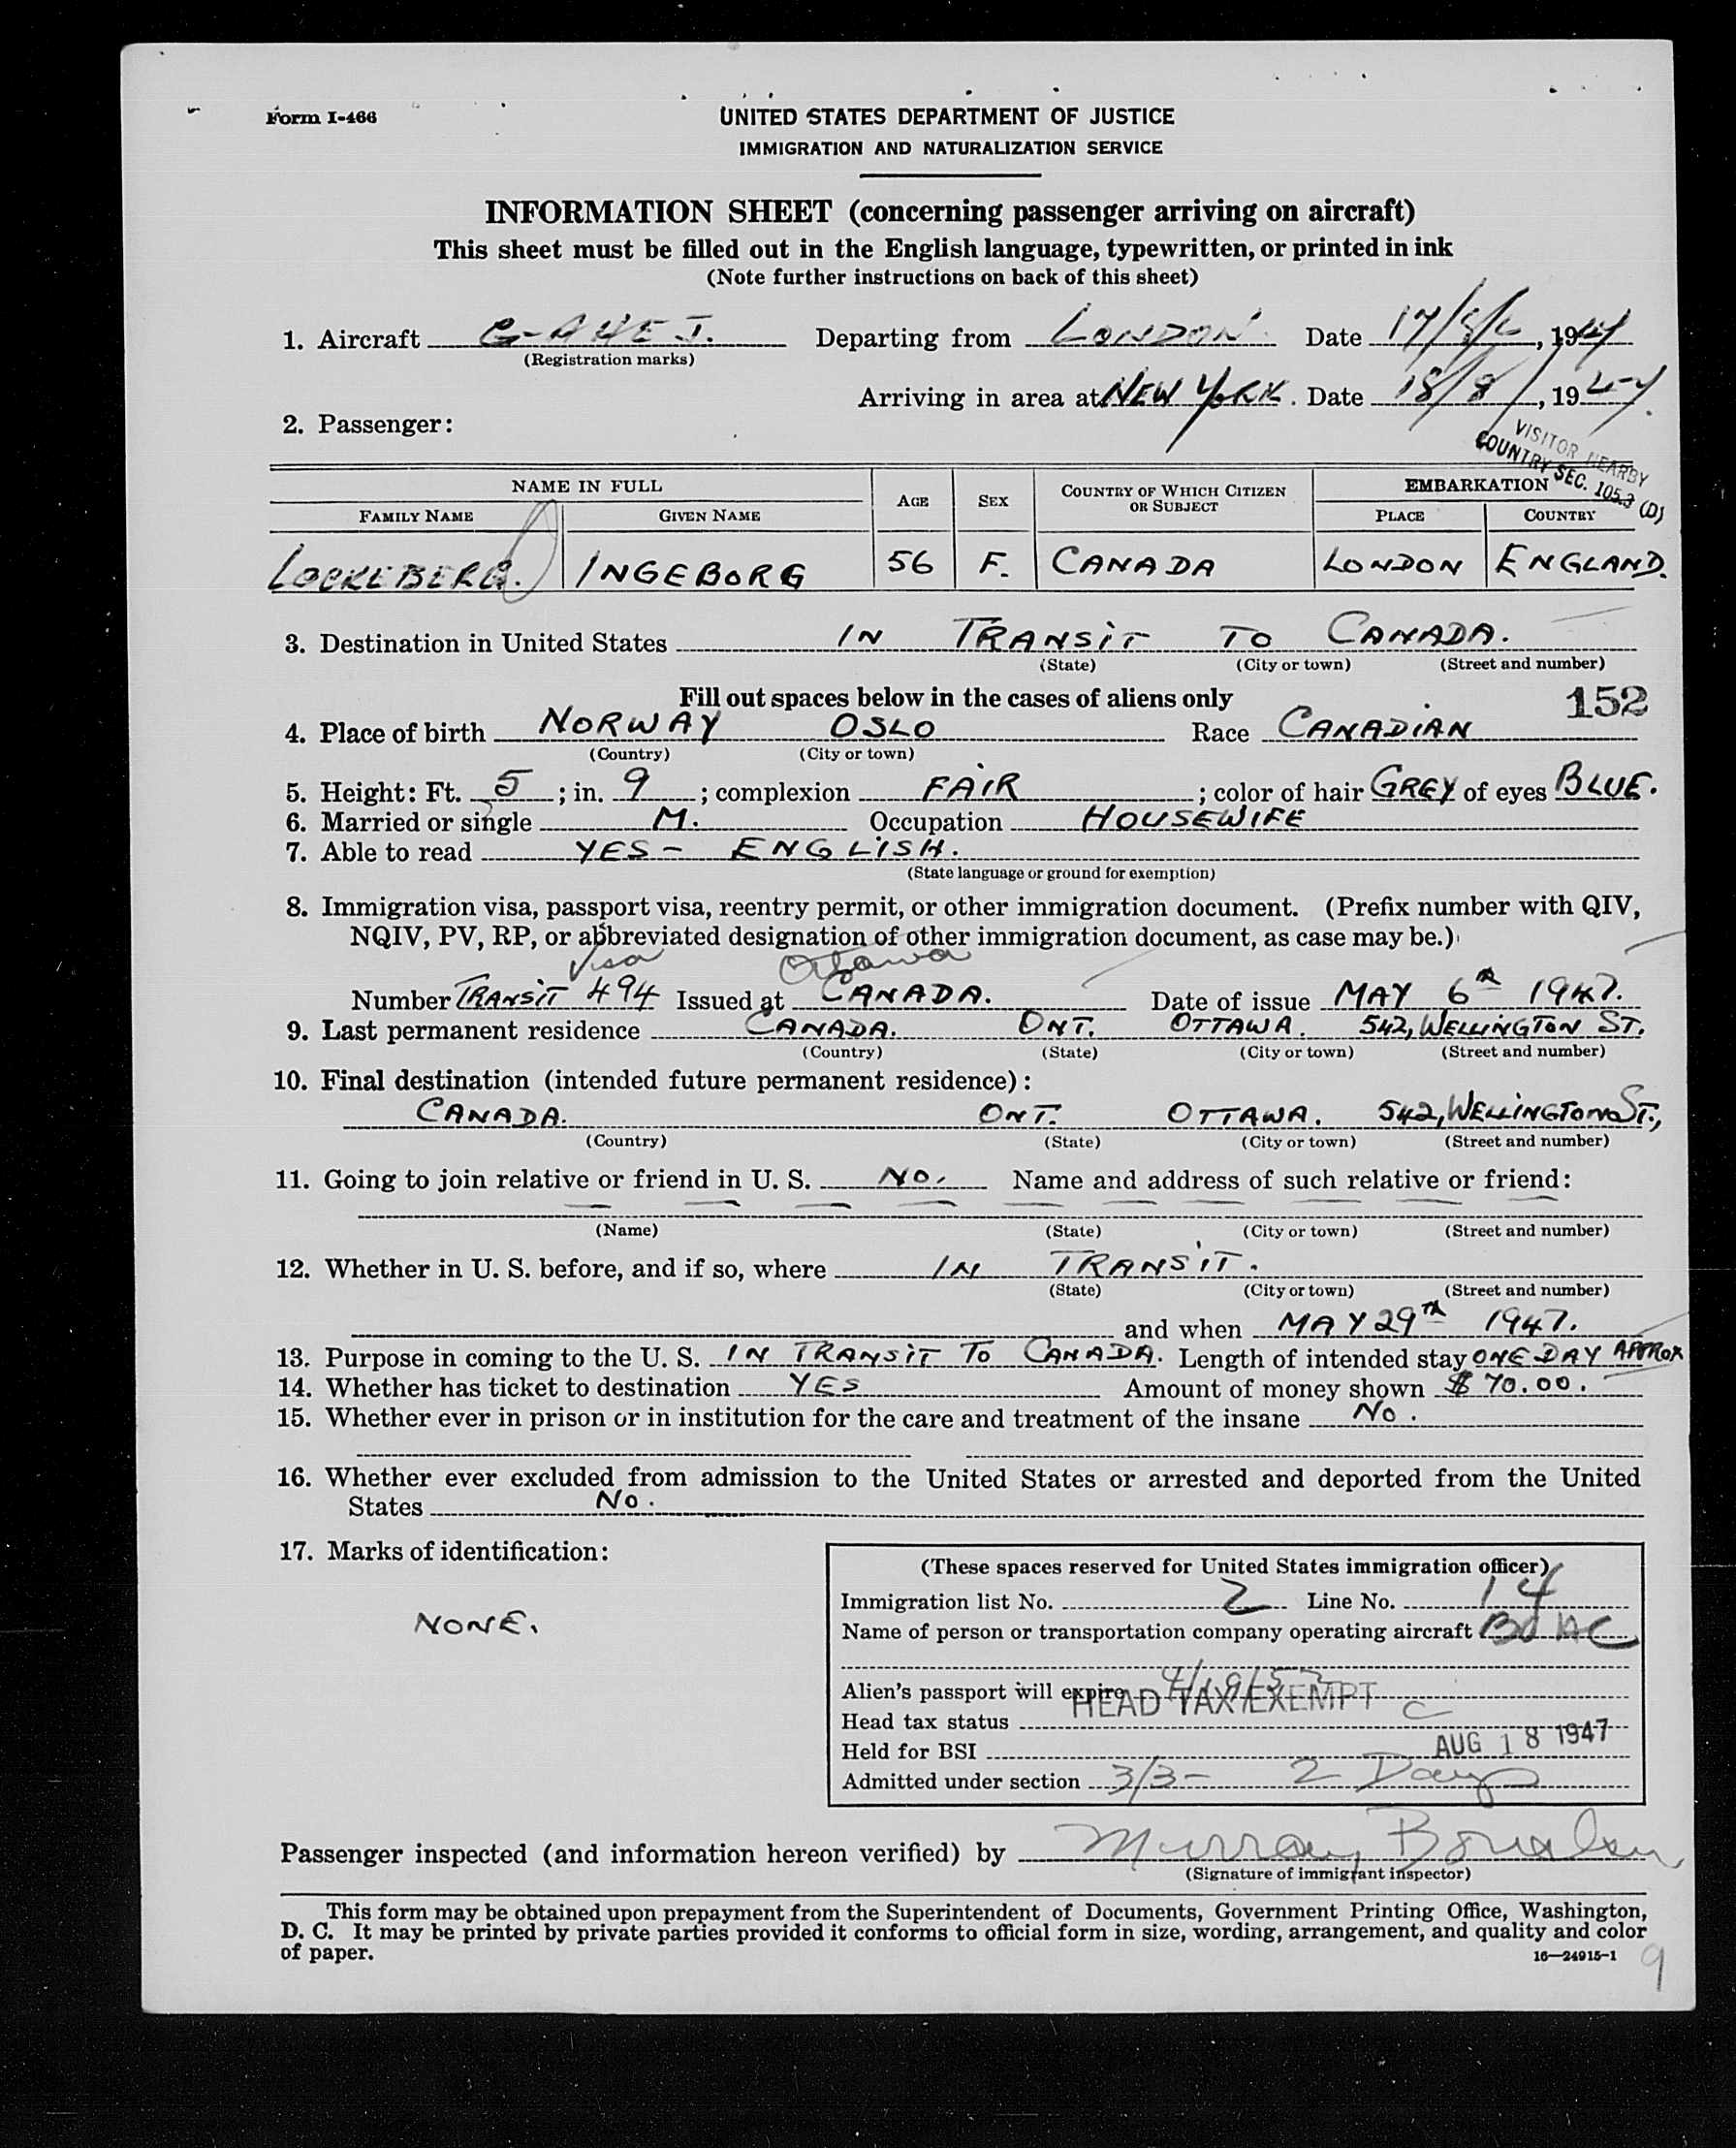 Form I-466
UNITED STATES DEPARTMENT OF JUSTICE
IMMIGRATION AND NATURALIZATION SERVICE
INFORMATION SHEET (concerning passenger arriving on aircraft)
This sheet must be filled out in the English language, typewritten, or printed in ink
(Note further instructions on back of this sheet)
1. Aircraft G-AHEJ. Departing from LONDON Date 17/8/, 194
(Registration marks)
Arriving in area at NEW YORK. Date 18/8/, 1947.
2. Passenger:
VISITOR NEARBY
COUNTRY SEC. 105.3 (D)
NAME IN FULL AGE SEX COUNTRY OF WHICH CITIZEN OR SUBJECT EMBARKATION
FAMILY NAME GIVEN NAME PLACE COUNTRY
LOCKEBERG. INGEBORG 56 F. CANADA LONDON ENGLAND.
3. Destination in United States IN TRANSIT TO CANADA.
(State) (City or town) (Street and number)
Fill out spaces below in the cases of aliens only 152
4. Place of birth NORWAY OSLO Race CANADIAN
(Country) (City or town)
5. Height: Ft. 5; in. 9; complexion FAIR; color of hair GREY of eyes BLUE.
6. Married or single M. Occupation HOUSEWIFE
7. Able to read YES - ENGLISH.
(State language or ground for exemption)
8. Immigration visa, passport visa, reentry permit, or other immigration document. (Prefix number with QIV,
NQIV, PV, RP, or abbreviated designation of other immigration document, as case may be.)
Visa Ottawa
Number TRANSIT 494 Issued at CANADA. Date of issue MAY 6th 1947.
9. Last permanent residence CANADA. ONT. OTTAWA. 542, WELLINGTON ST.
(Country) (State) (City or town) (Street and number)
10. Final destination (intended future permanent residence):
CANADA. ONT. OTTAWA. 542, WELLINGTON ST.,
(Country) (State) (City or town) (Street and number)
11. Going to join relative or friend in U. S. NO. Name and address of such relative or friend:
(Name) (State) (City or town) (Street and number)
12. Whether in U. S. before, and if so, where IN TRANSIT.
(State) (City or town) (Street and number)
and when MAY 29th 1947.
13. Purpose in coming to the U. S. IN TRANSIT TO CANADA. Length of intended stay ONE DAY APPROX
14. Whether has ticket to destination YES Amount of money shown $ 70.00.
15. Whether ever in prison or in institution for the care and treatment of the insane No.
16. Whether ever excluded from admission to the United States or arrested and deported from the United
States No.
17. Marks of identification:
NONE.
(These spaces reserved for United States immigration officer)
Immigration list No. 2 Line No. 14
Name of person or transportation company operating aircraft BOAC
Alien's passport will expire 4/19/52
HEAD TAX EXEMPT C
Head tax status
Held for BSI AUG 18 1947
Admitted under section 3/3- 2 Days
Passenger inspected (and information hereon verified) by Murray
(Signature of immigrant inspector)
This form may be obtained upon prepayment from the Superintendent of Documents, Government Printing Office, Washington,
D. C. It may be printed by private parties provided it conforms to official form in size, wording, arrangement, and quality and color
of paper.
16—24915-1
9